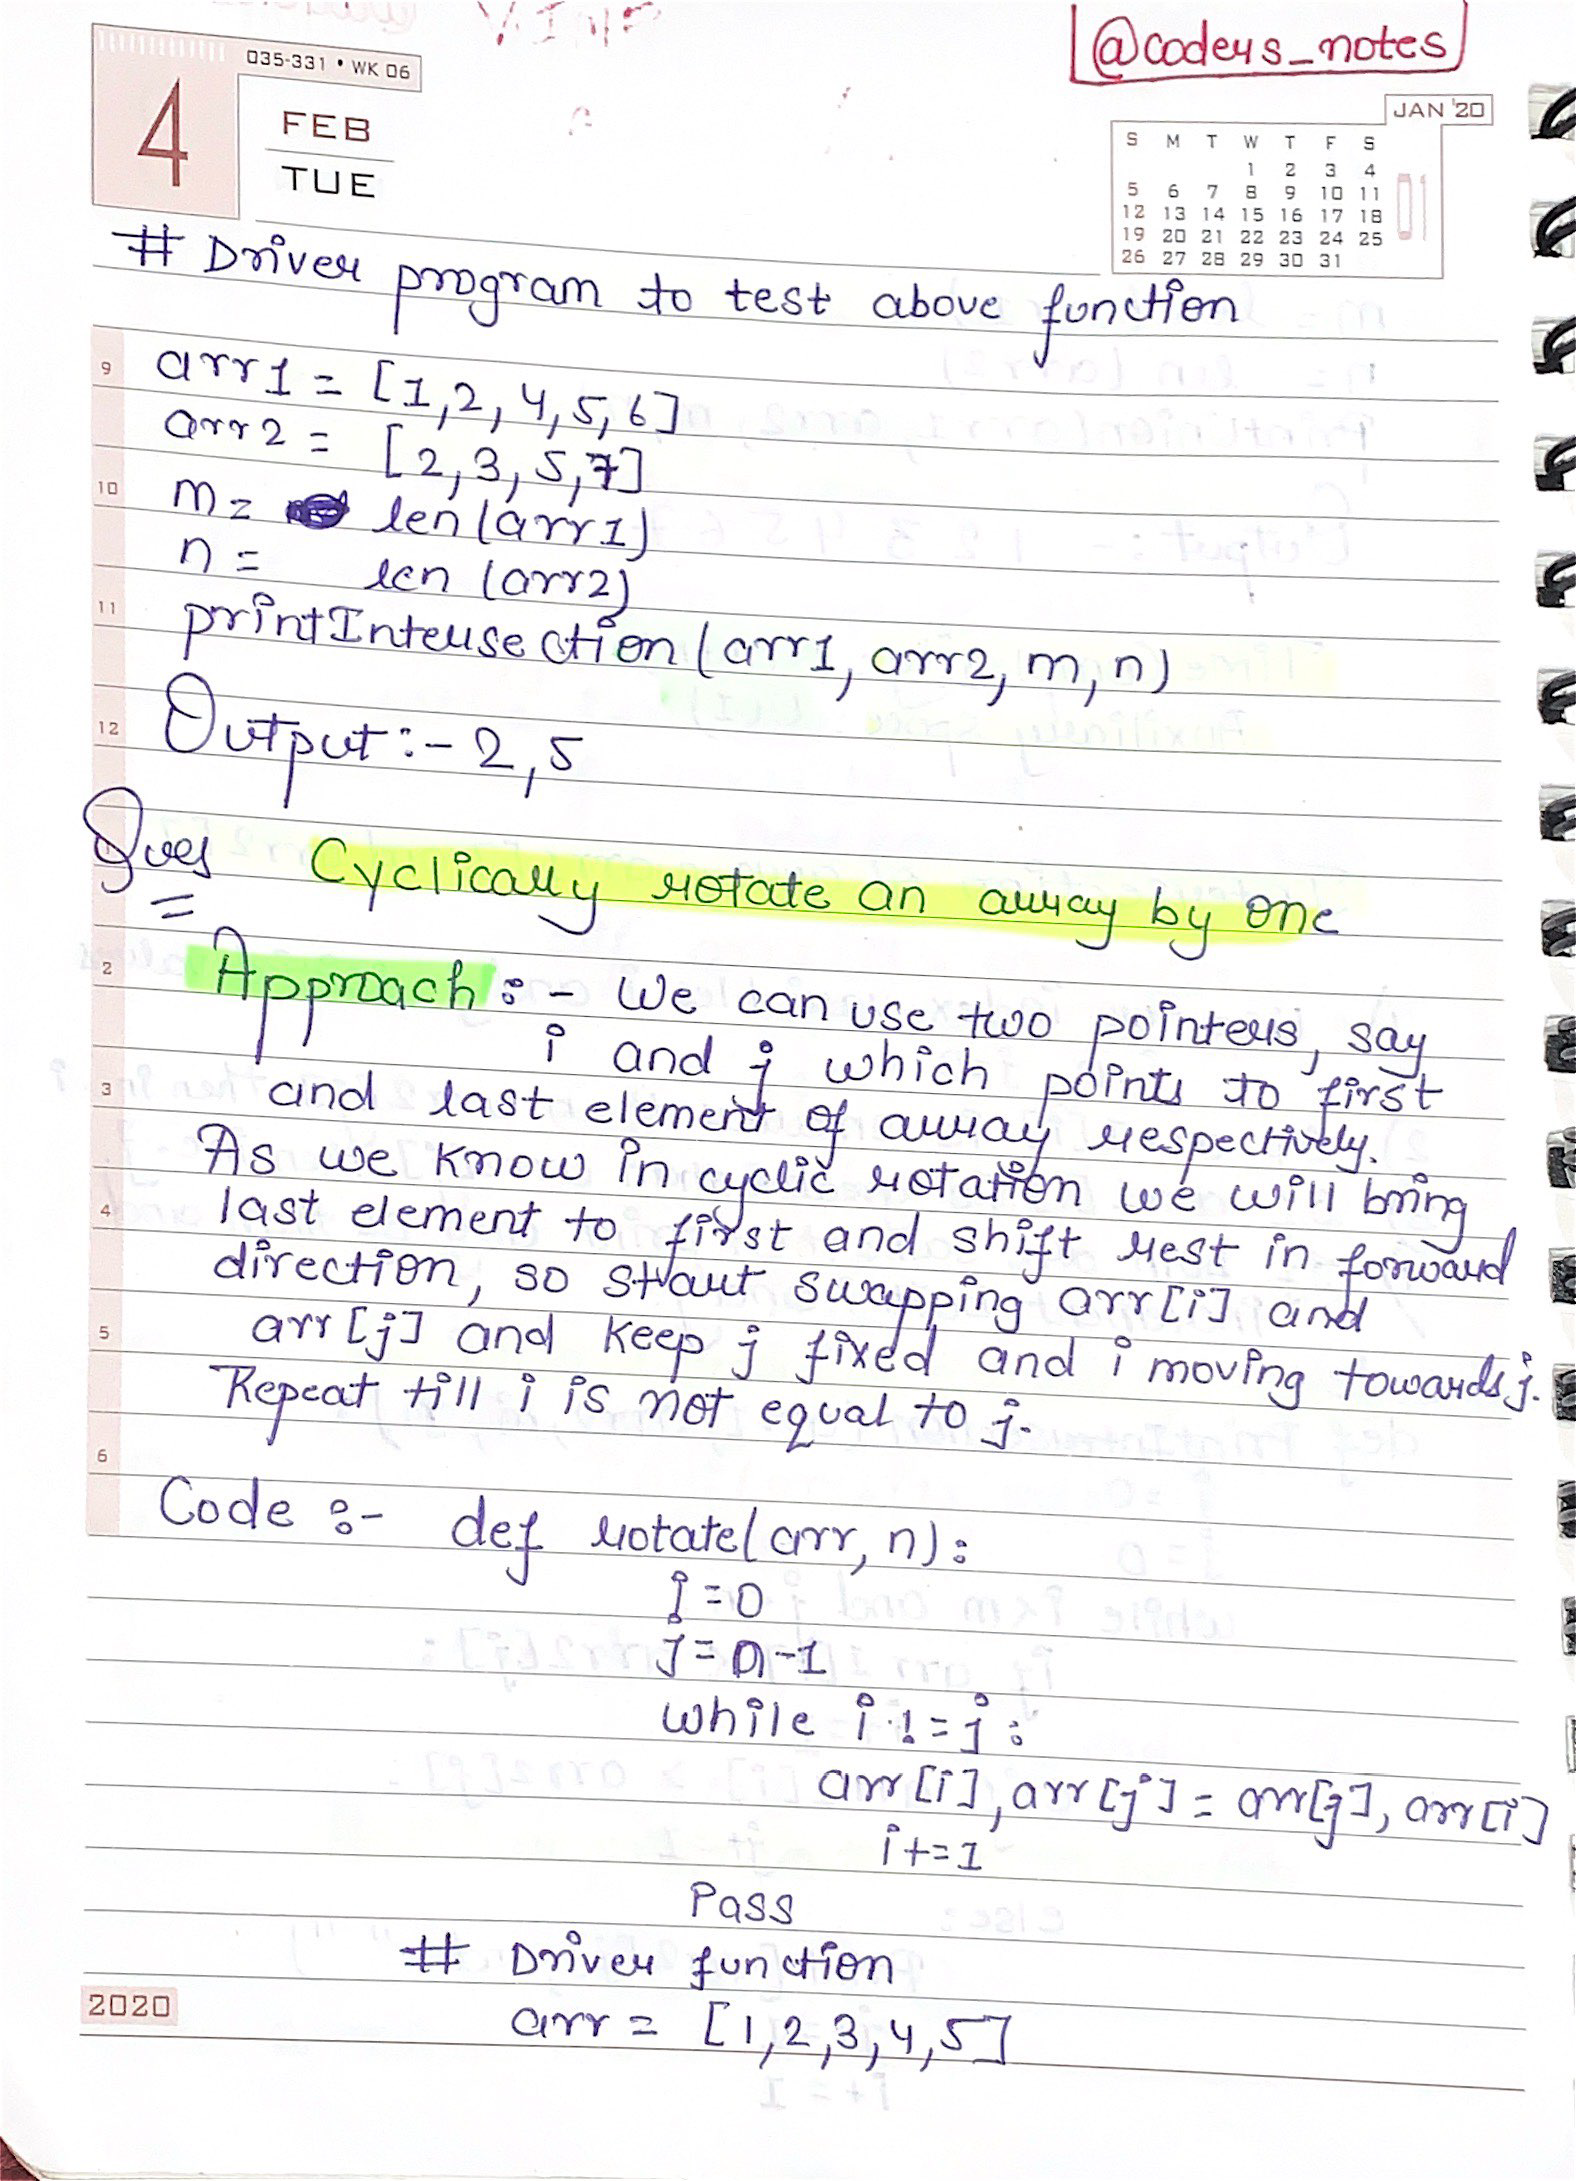 @codeys_notes
4
035-331 • WK 06
FEB
TUE
JAN '20
S M T W T F S
1 2 3 4
5 6 7 8 9 10 11
12 13 14 15 16 17 18
19 20 21 22 23 24 25
26 27 28 29 30 31
01
# Driver program to test above function
9
arr1 = [1,2,4,5,6]
arr2 = [2,3,5,7]
10
m = len(arr1)
n = len(arr2)
11
printIntersection(arr1, arr2, m, n)
12
Output:- 2,5
Ques Cyclically rotate an array by one
2
Approach:- We can use two pointers, say
i and j which points to first
3
and last element of array respectively.
As we know in cyclic rotation we will bring
4
last element to first and shift rest in forward
direction, so start swapping arr[i] and
5
arr[j] and keep j fixed and i moving towards j.
Repeat till i is not equal to j.
6
Code :- def rotate(arr, n):
i=0
j=n-1
while i != j:
arr[i], arr[j] = arr[j], arr[i]
i+=1
Pass
# Driver function
2020
arr = [1,2,3,4,5]